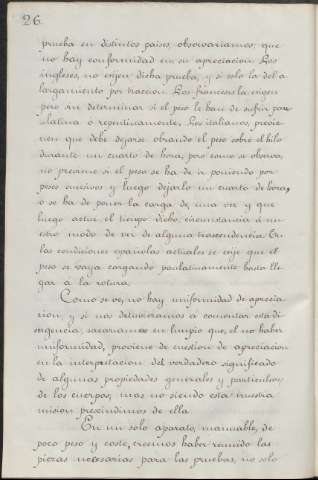 26
prueba en distintos paises, observariamos, que
no hay conformidad en su apreciacion. Los
ingleses, no exijen dicha prueba, y si solo la del a
largamiento por traccion. Los franceses la exijen
pero sin determinar si el peso le han de sufrir pau
latina ó repentinamente. Los italianos, previe
nen que debe dejarse obrando el peso sobre el hilo
durante un cuarto de hora, pero como se observa,
no precisa si el peso se ha de ir poniendo por
pesos sucesivos y luego dejarlo un cuarto de hora,
ó se ha de poner la carga de una vez y que
luego actue el tiempo dicho, circunstancia á nu
estro modo de ver de alguna trascendencia. En
las condiciones españolas actuales se exije que el
peso se vaya cargando paulatinamente hasta lle
gar á la rotura.
Como se ve, no hay uniformidad de aprecia
cion y si nos detuvieramos á comentar esta di
vergencia, sacaramos en limpio que, el no haber
uniformidad, proviene de cuestion de apreciacion
en la interpretacion del verdadero significado
de algunas propiedades generales y particulares
de los cuerpos, mas no siendo esta nuestra
mision prescindimos de ella.
En un solo aparato, manuable, de
poco peso y coste, creemos haber reunido las
piezas necesarias para las pruebas, no solo